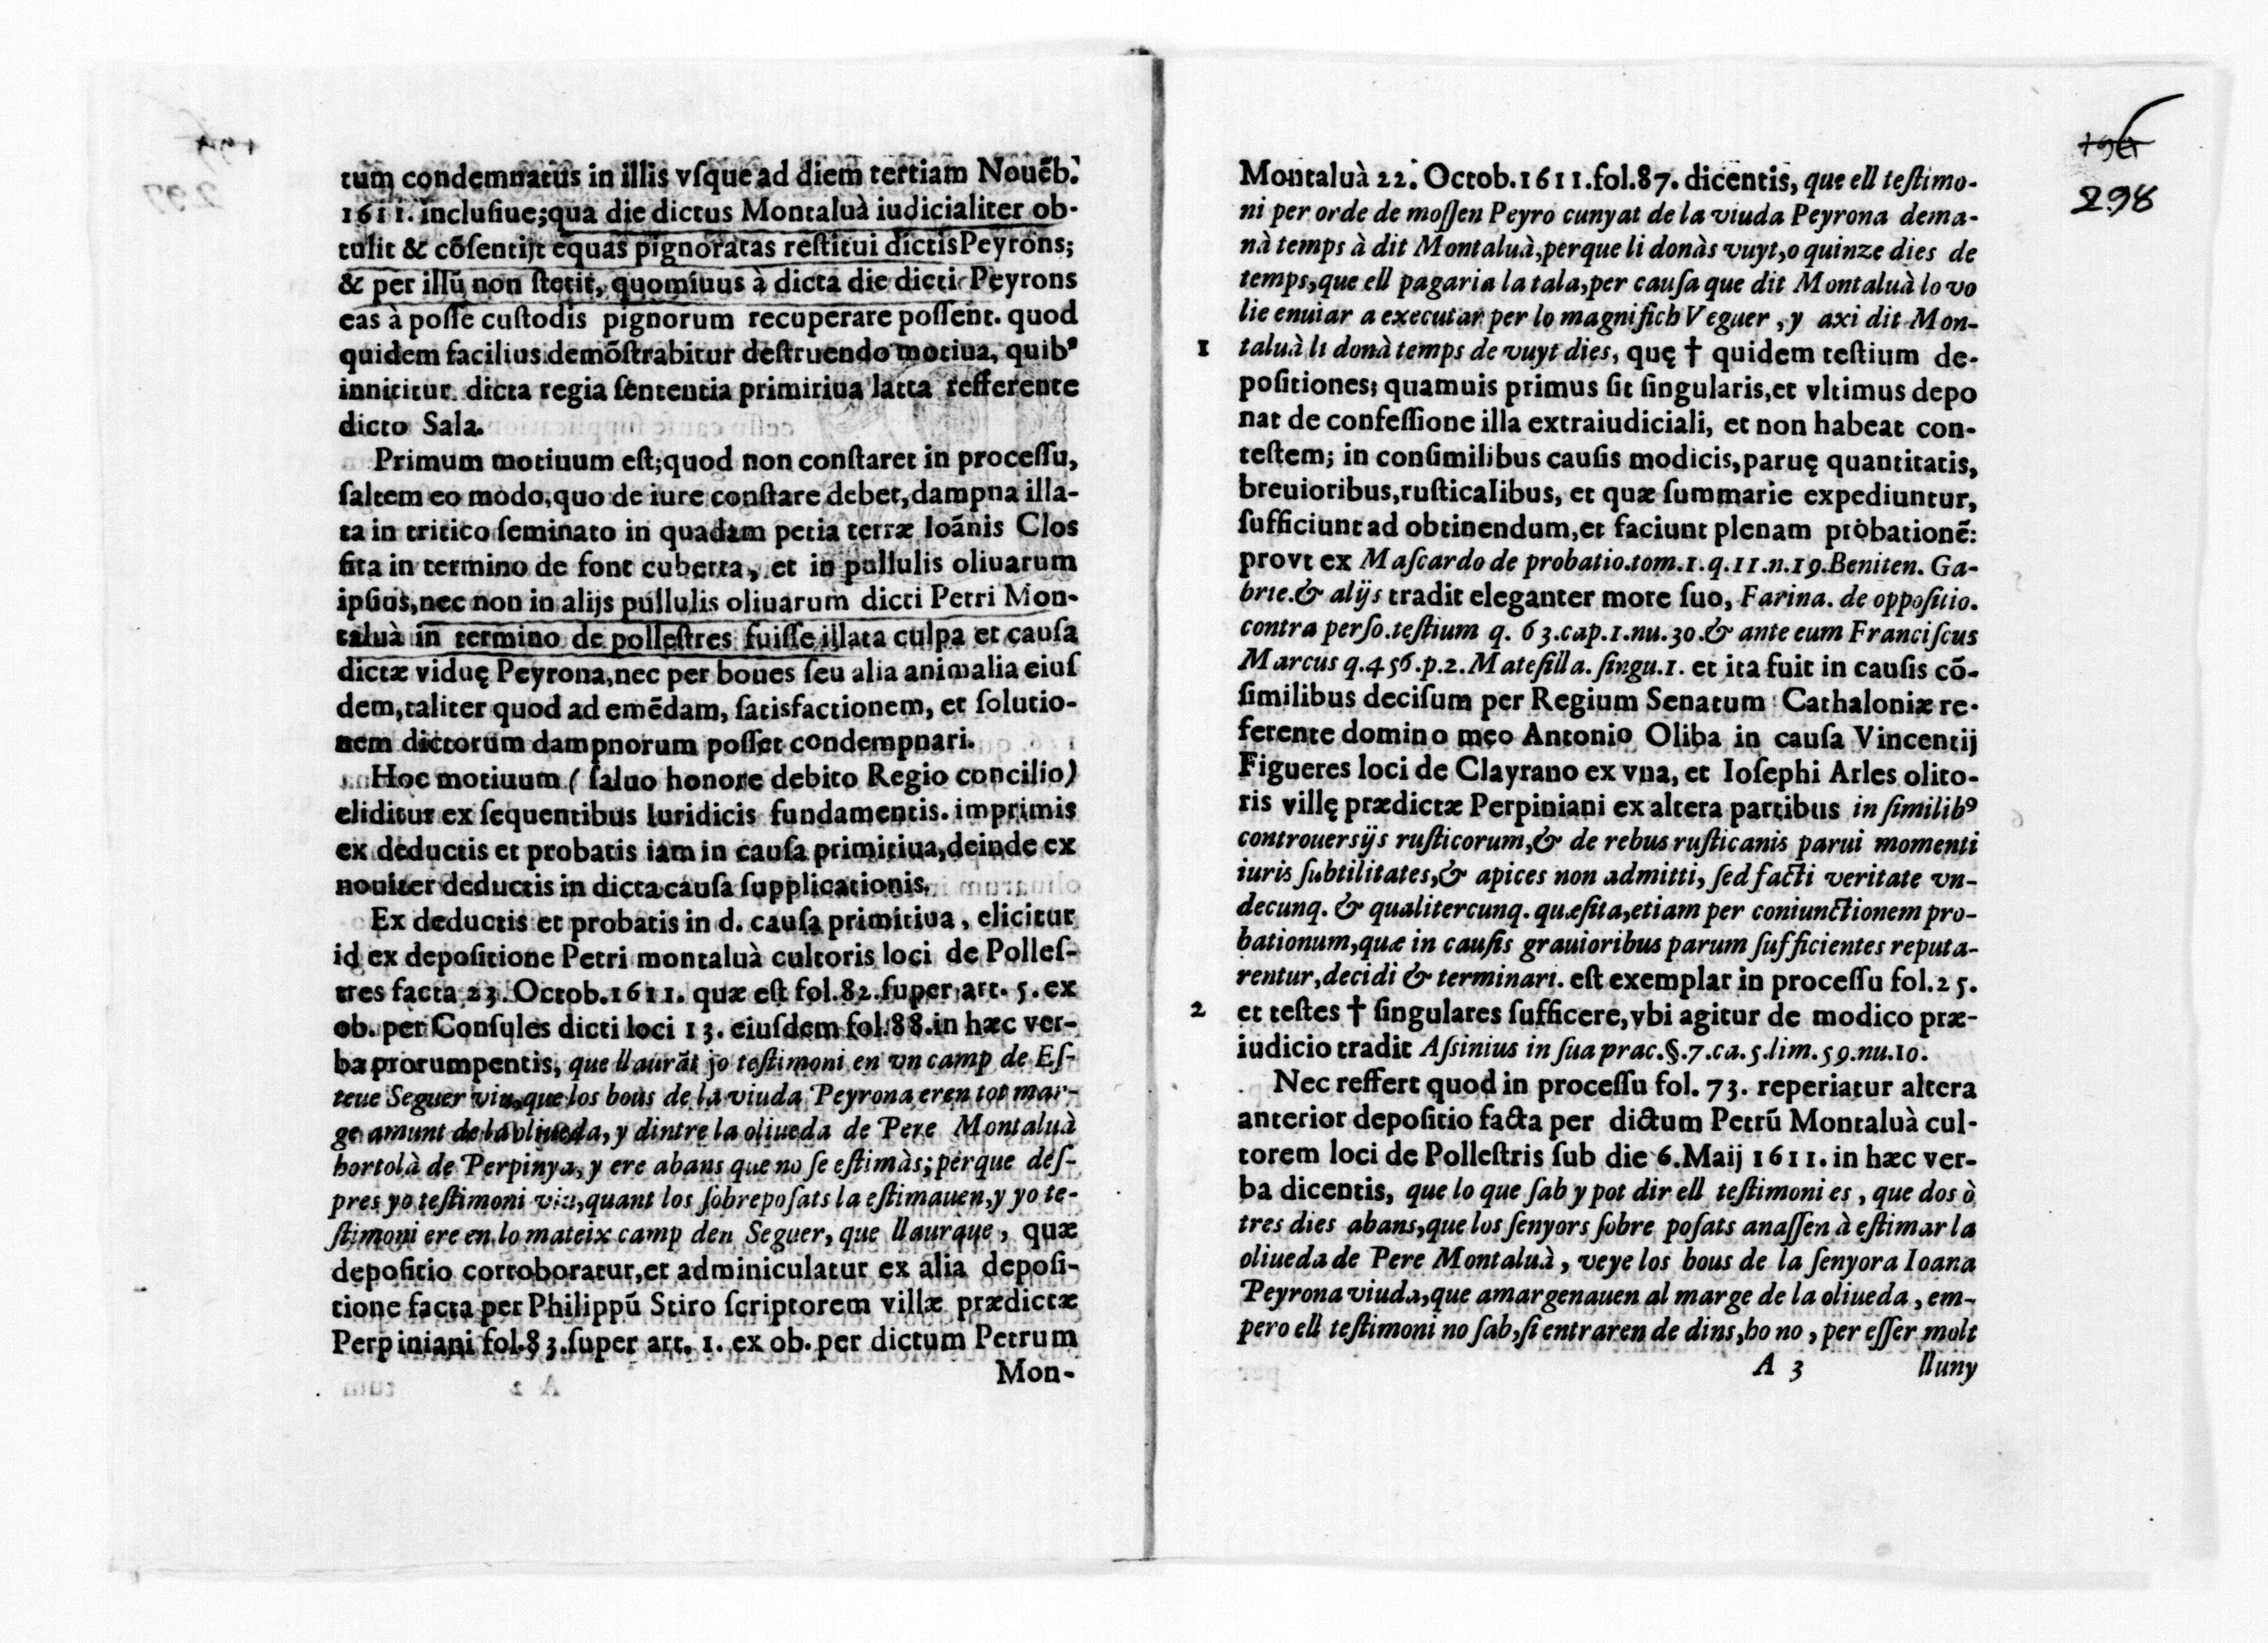 tum condemnatus in illis vſque ad diem tertiam Nouẽb.
1611. incluſiue; qua die dictus Montaluà iudicialiter ob-
tulit & cõſentijt equas pignoratas reſtitui dictis Peyrons;
& per illũ non ſtetit, quominus à dicta die dicti Peyrons
eas à poſſe cuſtodis pignorum recuperare poſſent. quod
quidem facilius demõſtrabitur deſtruendo motiua, quibꝰ
innititur dicta regia ſententia primitiua latta refferente
dicto Sala.
Primum motiuum eſt; quod non conſtaret in proceſſu,
ſaltem eo modo, quo de iure conſtare debet, dampna illa-
ta in tritico ſeminato in quadam petia terræ Ioãnis Clos
ſita in termino de font cuberta, et in pullulis oliuarum
ipſius, nec non in alijs pullulis oliuarum dicti Petri Mon-
taluà in termino de polleſtres fuiſſe illata culpa et cauſa
dictæ viduę Peyrona, nec per boues ſeu alia animalia eiuſ
dem, taliter quod ad emẽdam, ſatisfactionem, et ſolutio-
nem dictorum dampnorum poſſet condempnari.
Hoc motiuum (ſaluo honore debito Regio concilio)
eliditur ex ſequentibus Iuridicis fundamentis. imprimis
ex deductis et probatis iam in cauſa primitiua, deinde ex
nouiter deductis in dicta cauſa ſupplicationis.
Ex deductis et probatis in d. cauſa primitiua, elicitur
id ex depoſitione Petri montaluà cultoris loci de Polleſ-
tres facta 23. Octob. 1611. quæ eſt fol. 82. ſuper art. 5. ex
ob. per Conſules dicti loci 13. eiuſdem fol. 88. in hæc ver-
ba prorumpentis, que llaurãt jo teſtimoni en vn camp de Eſ-
teue Seguer viu, que los bous de la viuda Peyrona eren tot mar-
ge amunt de la oliueda, y dintre la oliueda de Pere Montaluà
hortolà de Perpinya, y ere abans que no ſe eſtimàs; perque deſ-
pres yo teſtimoni viu, quant los ſobrepoſats la eſtimauen, y yo te-
ſtimoni ere en lo mateix camp den Seguer, que llauraue, quæ
depoſitio corroboratur, et adminiculatur ex alia depoſi-
tione facta per Philippũ Stiro ſcriptorem villæ prædictæ
Perpiniani fol. 83. ſuper art. 1. ex ob. per dictum Petrum
Mon-
196
298
Montaluà 22. Octob. 1611. fol. 87. dicentis, que ell teſtimo-
ni per orde de moſſen Peyro cunyat de la viuda Peyrona dema-
nà temps à dit Montaluà, perque li donàs vuyt, o quinze dies de
temps, que ell pagaria la tala, per cauſa que dit Montaluà lo vo
lie enuiar a executar per lo magnifich Veguer, y axi dit Mon-
1 taluà li donà temps de vuyt dies, quę † quidem teſtium de-
poſitiones; quamuis primus ſit ſingularis, et vltimus depo
nat de confeſſione illa extraiudiciali, et non habeat con-
teſtem; in conſimilibus cauſis modicis, paruę quantitatis,
breuioribus, ruſticalibus, et quæ ſummarie expediuntur,
ſufficiunt ad obtinendum, et faciunt plenam probationẽ:
provt ex Maſcardo de probatio. tom. 1. q. 11. n. 19. Beniten. Ga-
brie. & alijs tradit eleganter more ſuo, Farina. de oppoſitio.
contra perſo. teſtium q. 63. cap. 1. nu. 30. & ante eum Franciſcus
Marcus q. 456. p. 2. Mateſilla. ſingu. 1. et ita fuit in cauſis cõ-
ſimilibus deciſum per Regium Senatum Cathaloniæ re-
ferente domino meo Antonio Oliba in cauſa Vincentij
Figueres loci de Clayrano ex vna, et Ioſephi Arles olito-
ris villę prædictæ Perpiniani ex altera partibus in ſimilibꝰ
controuerſijs ruſticorum, & de rebus ruſticanis parui momenti
iuris ſubtilitates, & apices non admitti, ſed facti veritate vn-
decunq. & qualitercunq. quæſita, etiam per coniunctionem pro-
bationum, quæ in cauſis grauioribus parum ſufficientes reputa-
rentur, decidi & terminari. eſt exemplar in proceſſu fol. 25.
2 et teſtes † ſingulares ſufficere, vbi agitur de modico præ-
iudicio tradit Aſsinius in ſua prac. §. 7. ca. 5. lim. 59. nu. 10.
Nec reffert quod in proceſſu fol. 73. reperiatur altera
anterior depoſitio facta per dictum Petrũ Montaluà cul-
torem loci de Polleſtris ſub die 6. Maij 1611. in hæc ver-
ba dicentis, que lo que ſab y pot dir ell teſtimoni es, que dos ò
tres dies abans, que los ſenyors ſobre poſats anaſſen à eſtimar la
oliueda de Pere Montaluà, veye los bous de la ſenyora Ioana
Peyrona viuda, que amargenauen al marge de la oliueda, em-
pero ell teſtimoni no ſab, ſi entraren de dins, ho no, per eſſer molt
A 3 lluny